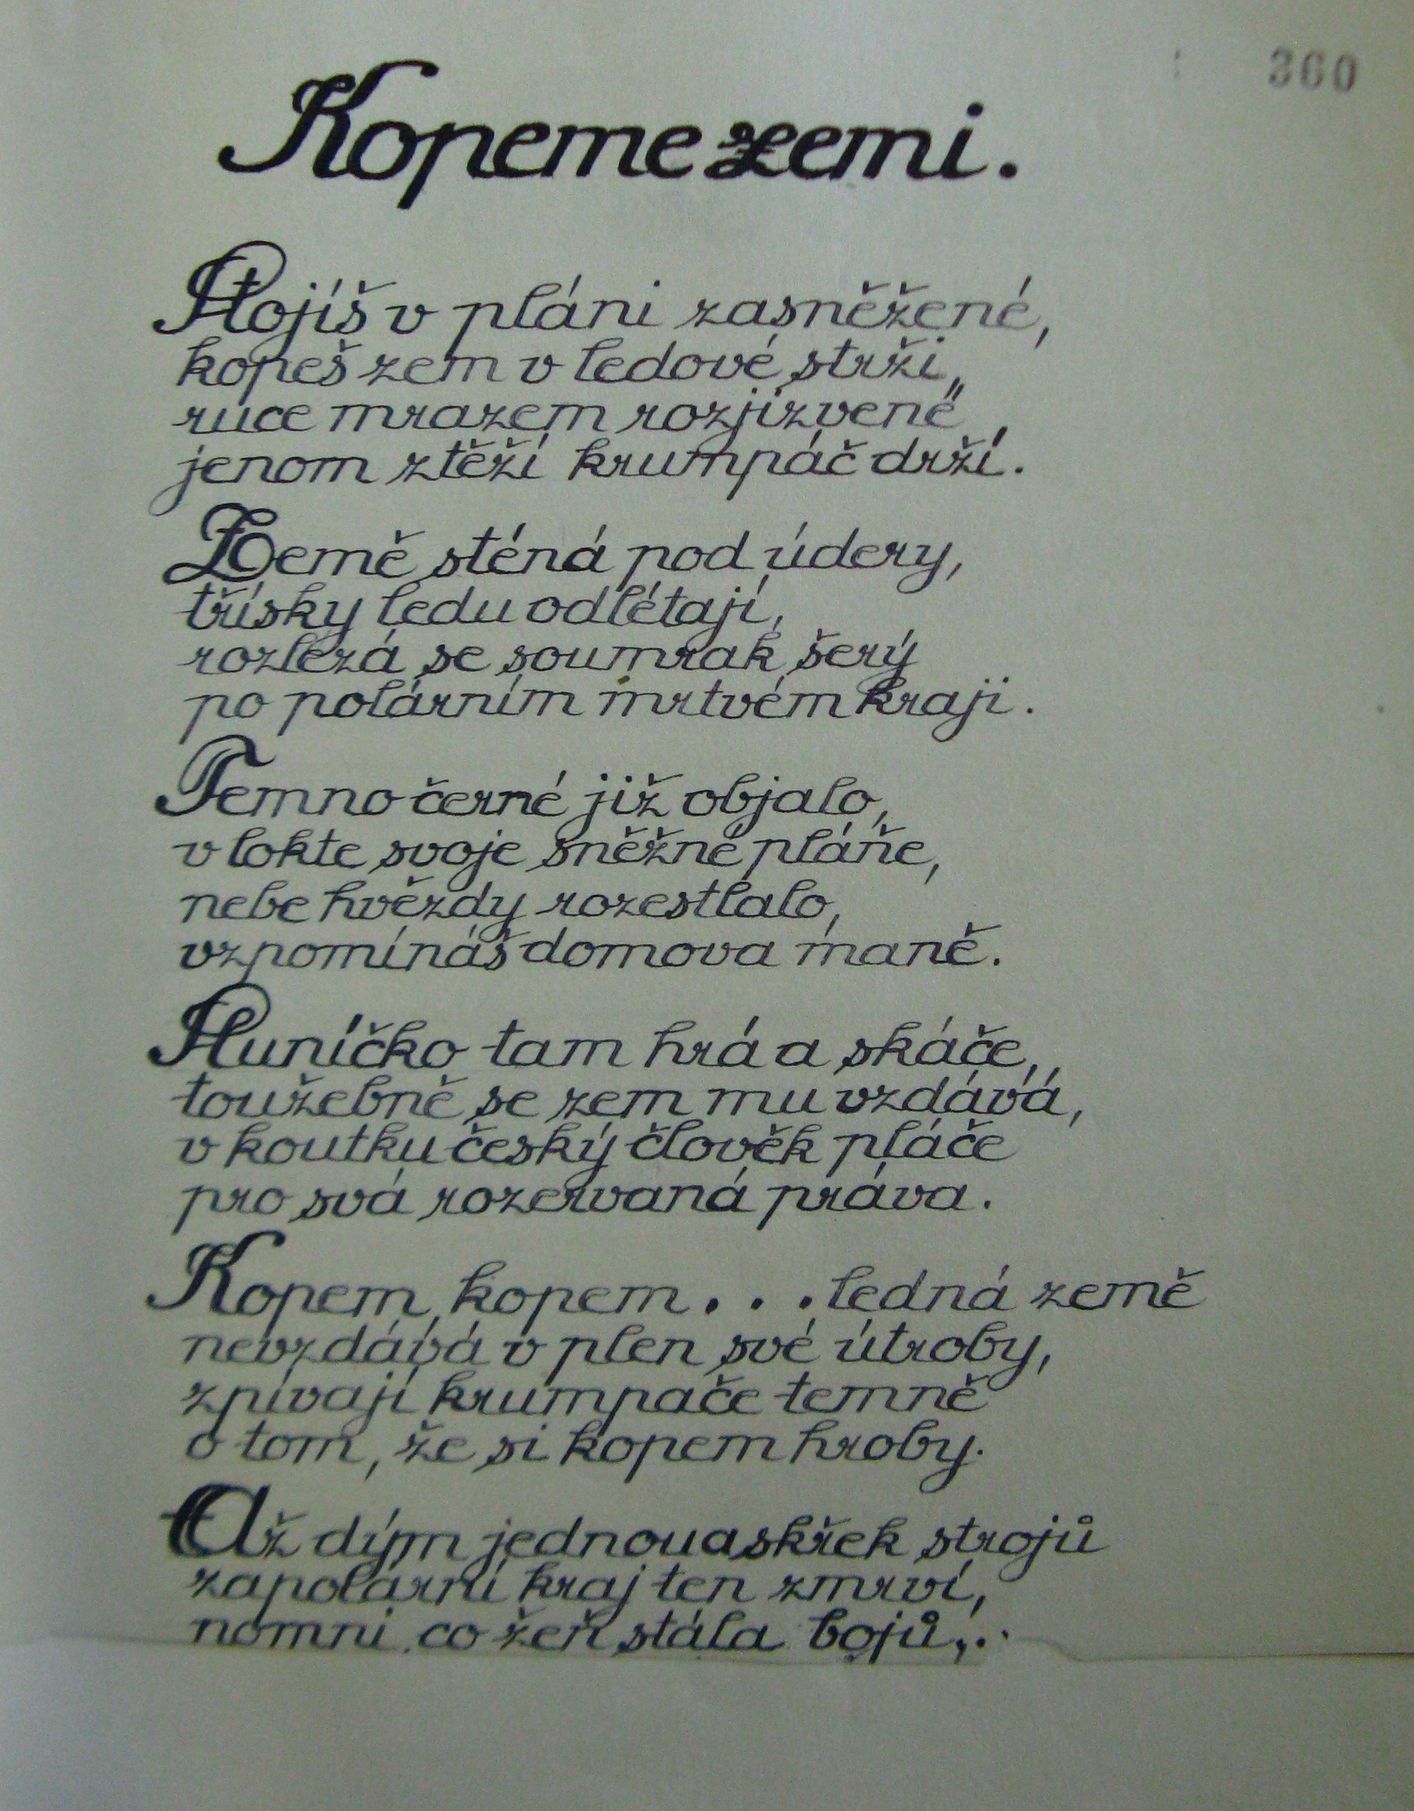 360
Kopeme zemi.
Stojíš v pláni zasněžené,
kopeš zem v ledové strži,
ruce mrazem rozjizvené
jenom ztěží krumpáč drží.
Země sténá pod údery,
třísky ledu odlétají,
rozlézá se soumrak šerý
po polárním mrtvém kraji.
Temno černé již objalo,
v lokte svoje sněžné pláňe,
nebe hvězdy rozestlalo,
vzpomínáš domova maně.
Sluníčko tam hrá a skáče,
toužebně se zem mu vzdává,
v koutku český člověk pláče
pro svá rozervaná práva.
Kopem, kopem... ledná země
nevzdává v plen své útroby,
zpívají krumpače temně
o tom, že si kopem hroby.
Až dým jednou a skřek strojů
zapolární kraj ten zmrví,
pomni co žeň stála bojů,..